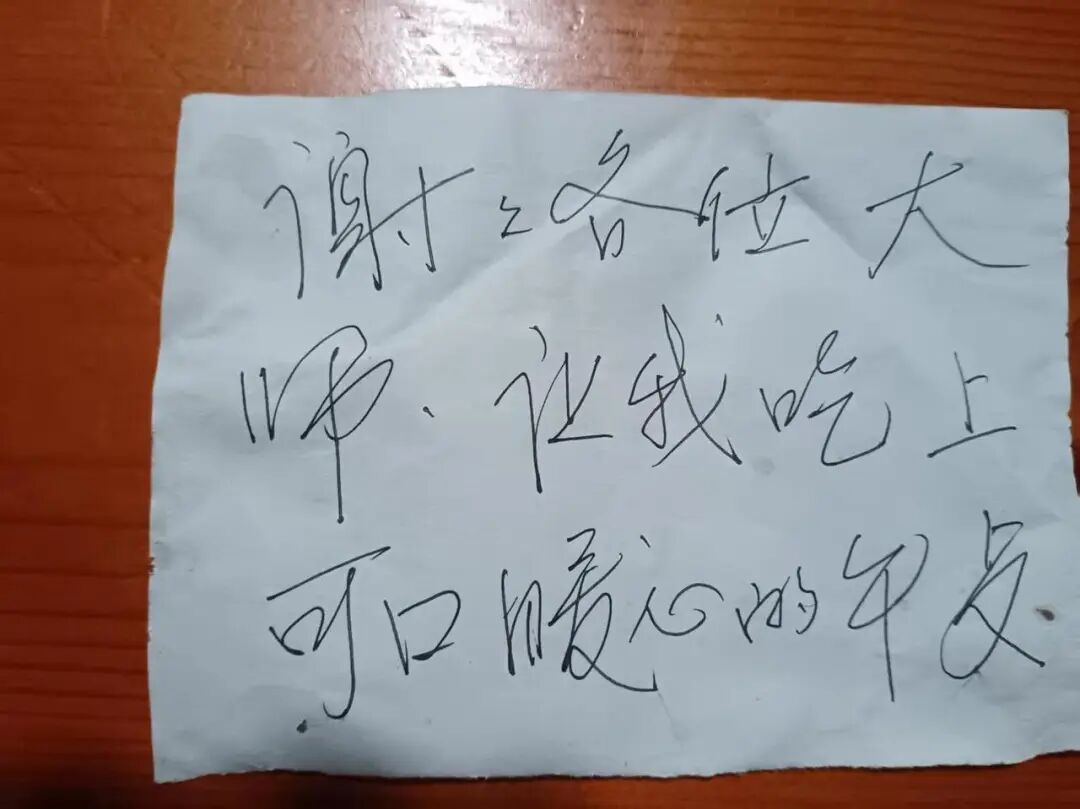 谢々各位大
师、让我吃上
可口暖心的年夜